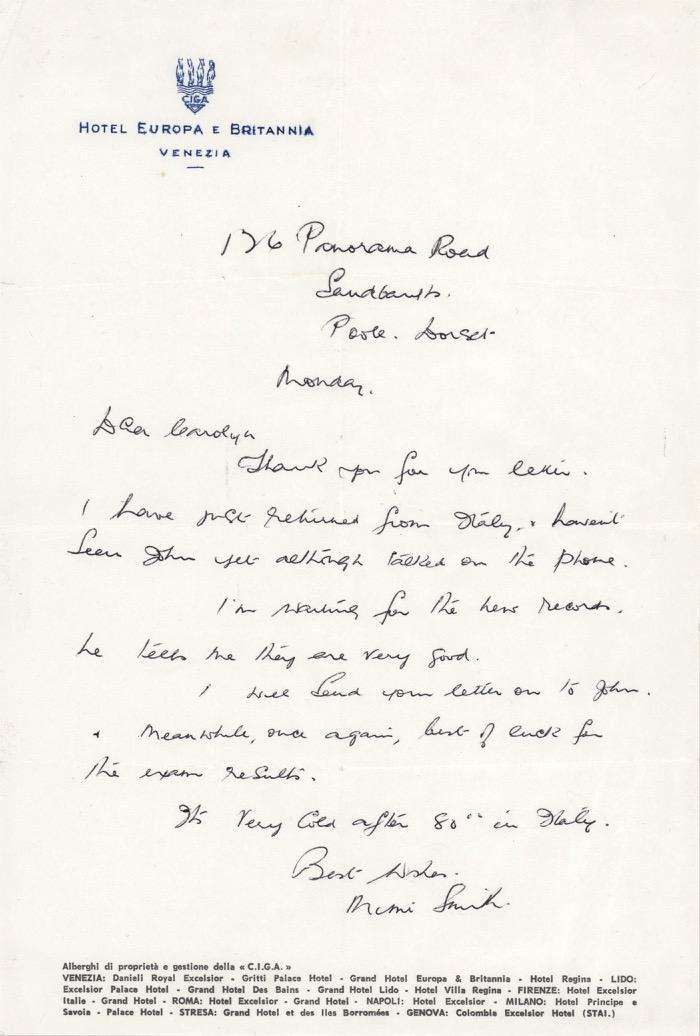 CIGA
HOTEL EUROPA E BRITANNIA
VENEZIA
126 Panorama Road
Sandbanks.
Poole. Dorset
Monday.
Dear Carolyn
Thank you for your letter.
I have just returned from Italy, & haven't
seen John yet although talked on the phone.
I'm waiting for the new records.
he tells me they are very good.
I will send your letter on to John.
& meanwhile, once again, best of luck for
the exam results.
Its very cold after 80°° in Italy.
Best wishes.
Mimi Smith.
Alberghi di proprietà e gestione della « C.I.G.A. »
VENEZIA: Danieli Royal Excelsior - Gritti Palace Hotel - Grand Hotel Europa & Britannia - Hotel Regina - LIDO:
Excelsior Palace Hotel - Grand Hotel Des Bains - Grand Hotel Lido - Hotel Villa Regina - FIRENZE: Hotel Excelsior
Italie - Grand Hotel - ROMA: Hotel Excelsior - Grand Hotel - NAPOLI: Hotel Excelsior - MILANO: Hotel Principe e
Savoia - Palace Hotel - STRESA: Grand Hotel et des Iles Borromées - GENOVA: Colombia Excelsior Hotel (STAI.)